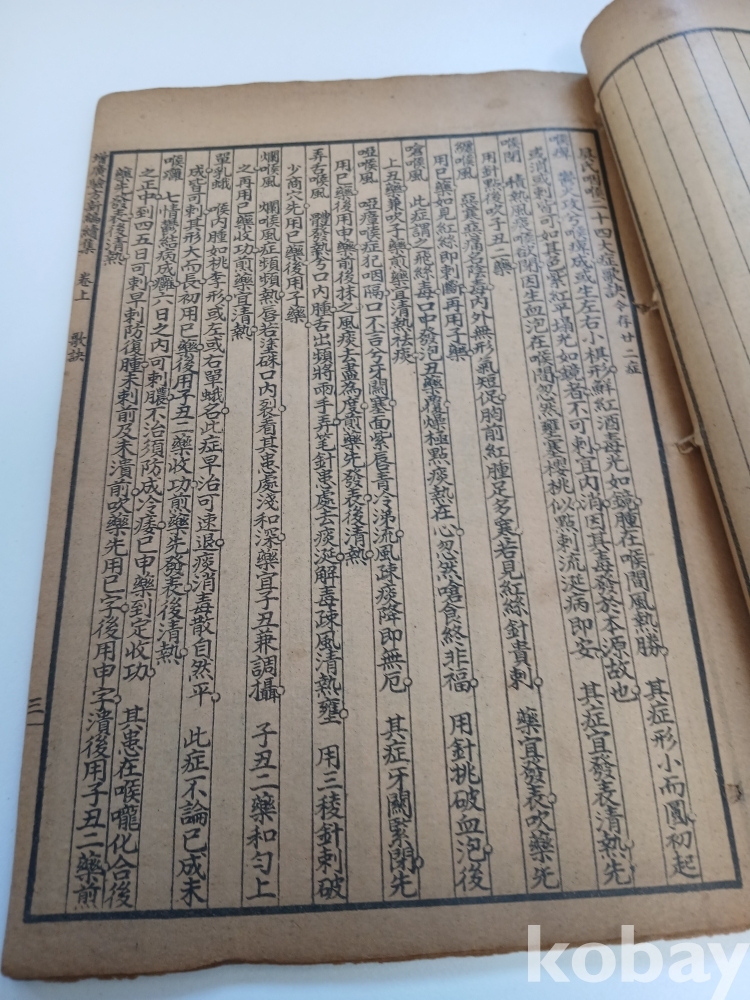 吳氏咽喉二十四大症歌訣 今存廿二症
喉痺 內攻兮喉痺成或生左右小棋形鮮紅酒毒光如鏡腫在喉間風熱勝 其症形小而圓初起
或消或刺皆可如其色紫紅平塌光如鏡者不可刺宜內消因其毒發於本源故也
喉閉 積熱風痰喉欲閉因生血泡在喉間忽然壅塞櫻桃似點刺流涎病即安 其症宜發表清熱先
用針點後吹子丑二藥
纏喉風 惡寒惡痛名陰毒內外無形氣短促胸前紅腫足多寒若見紅絲針責刺 藥宜發表吹藥先
用巳藥如見紅絲即刺斷再用子藥
嗆喉風 此症謂之飛絲毒口中發泡丑藥覆燥極點痰熱在心忽然嗆食終非福 用針挑破血泡後
上丑藥兼吹子藥煎藥宜清熱祛痰
啞喉風 啞瘴喉症犯咽隔口不言兮牙關塞面紫唇青冷涕流風疎痰降即無厄 其症牙關緊閉先
用巳藥後用申藥前後抹之風痰去盡為度煎藥先發表後清熱
弄舌喉風 體發熱兮口內腫舌出頻將兩手弄笔針患處去痰涎解毒疎風清熱壅 用三稜針刺破
少商穴先用巳藥後用子藥
爛喉風 爛喉風症頻頻熱唇若塗硃口內裂看其患處淺和深藥宜子丑兼調攝 子丑二藥和勻上
之再用巳藥收功煎藥宜清熱
單乳蛾 喉內腫如桃李形或左或右單蛾名此症早治可速退痰消毒散自然平 此症不論已成未
成皆可刺其形大而長初用巳藥後用子丑二藥收功煎藥先發表後清熱
喉癰 七情鬱結病成癰六日之內可刺膿不治須防成冷痿巳申藥到定收功 其患在喉嚨化合後
之正中到四五日可刺早刺防復腫未刺前及未潰前吹藥先用巳字後用申字潰後用子丑二藥煎
藥先發表後清熱
增廣驗方新編續集 卷上 歌訣 三
kobay